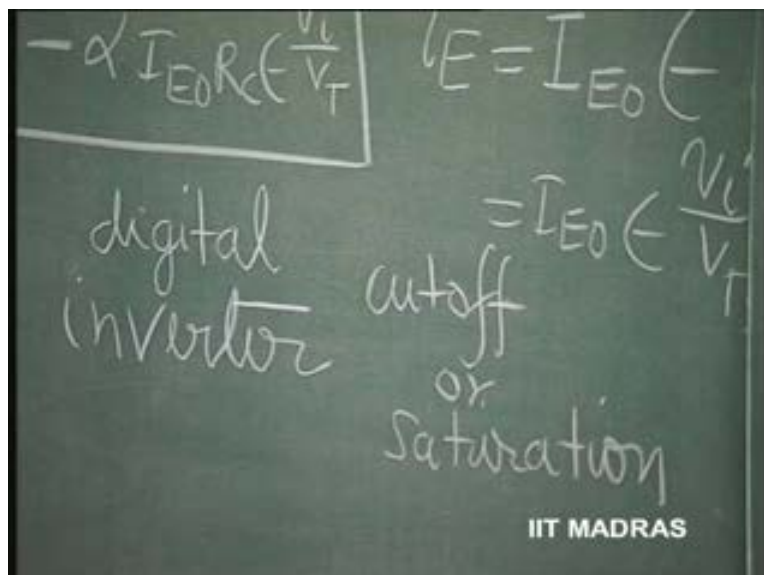 - α I_E0 R_C ϵ v_i/V_T
i_E = I_E0 ϵ
= I_E0 ϵ v_i/V_T
digital
invertor
cutoff
or
saturation
IIT MADRAS